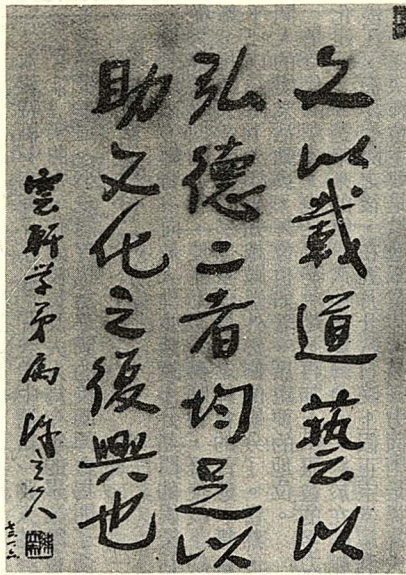 文以載道藝以
弘德二者均足以
助文化之復興也
雲軒学弟属 陳立夫